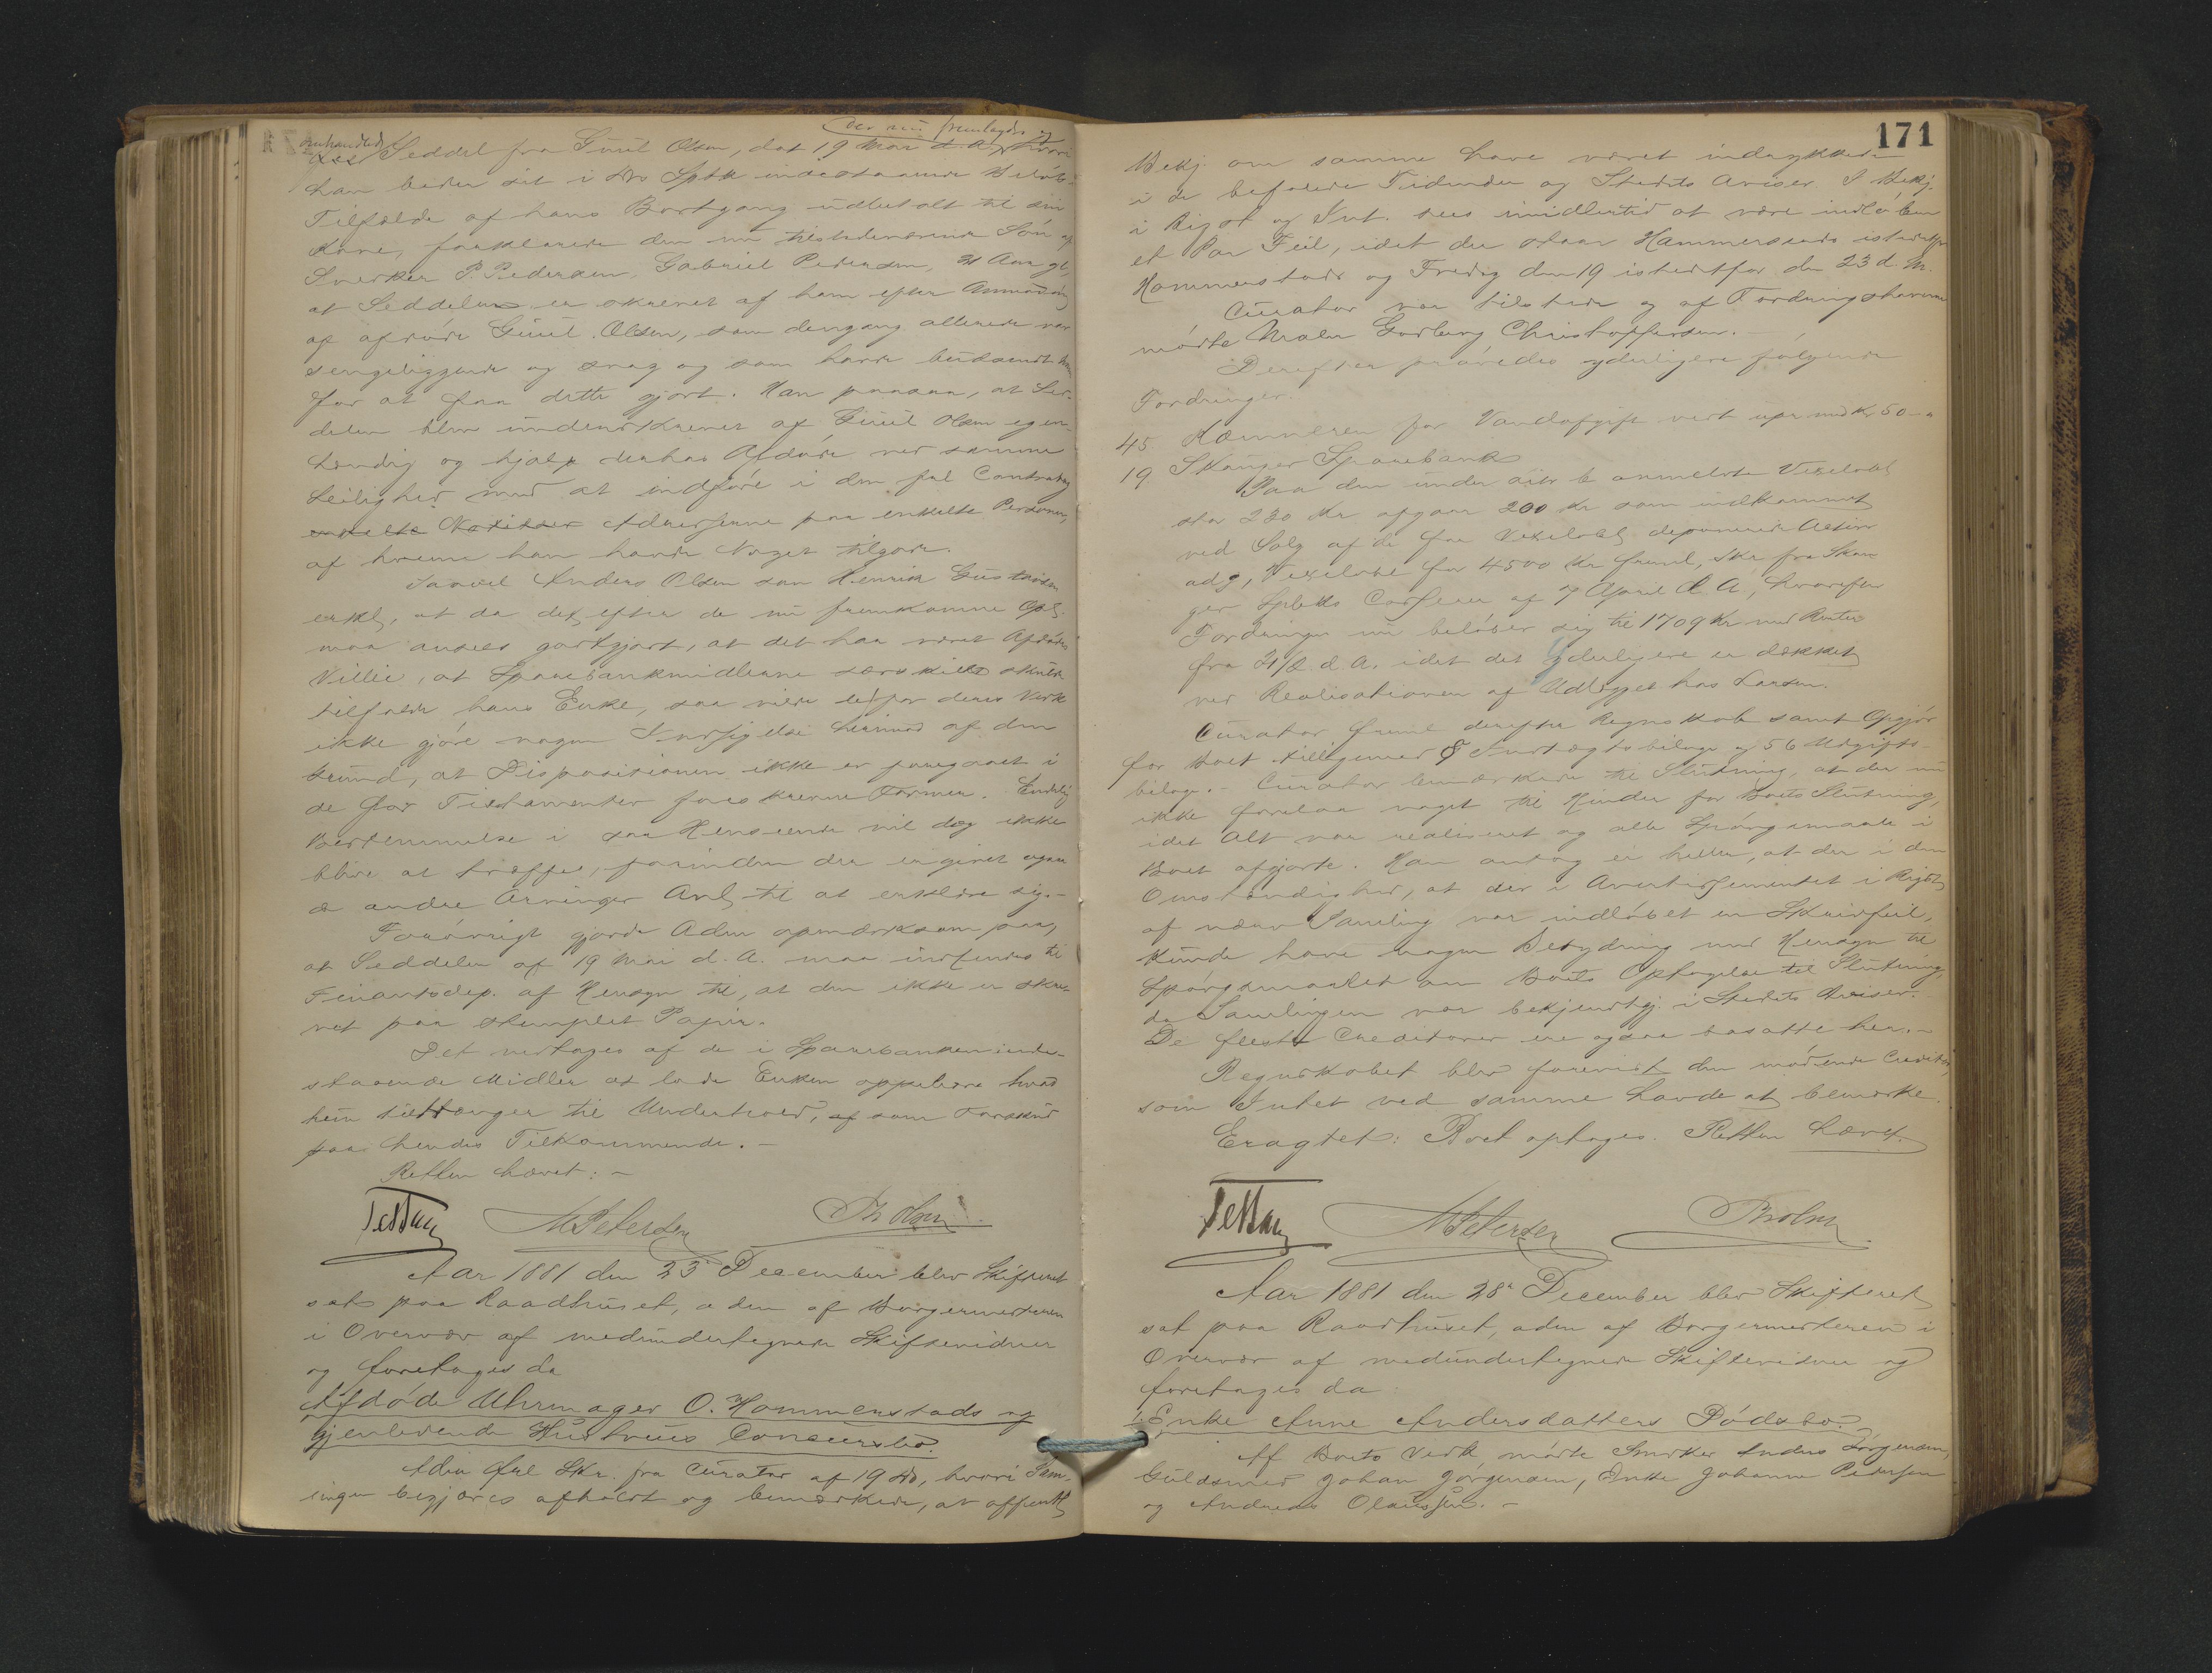 der nu fremlagdes og
omhandlede Seddel fra Guul Olsen, dat 19 Mai d. A., hvori
han beder sit i Sptk indestaaende Beløb i
Tilfælde af hans Bortgang udbetalt til sin
Kone, forklarede den nu tilstedeværende Søn af
Snerker P. Pedersen, Gabriel Pedersen, 21 Aar gl.,
at Seddelen er skrevet af ham efter Anmodning
af afdøde Guul Olsen, som dengang allerede var
sengeliggende og svag og som havde budsendt ham
for at faa dette gjort. Han paasaa, at Sed-
delen blev underskrevet af Guul Olsen egen-
hændig og hjalp derhos Afdøde ved samme
Leilighed med at indføre i den
Notitser Adresserne paa enkelte Personer,
af hvem han havde Noget tilgode.
Saavel Anders Olsen som Henrik Gustavsen
erkl, at da det efter de nu fremkomne Opl.
maa ansees godtgjort, at det har været Afdødes
Villie, at Sparebankmidlerne særskilt skulde
tilfalde hans Enke, saa vilde de for deres Vedk
ikke gjøre nogen Indsigelse herimod af den
Grund, at Dispositionen ikke er foregaaet i
de for Testamenter foreskrevne Former. Endelig
Bestemmelse i saa Henseende vil dog ikke
blive at træffe, forinden der er givet ogsaa
de andre Arvinger Anl til at erklære sig.-
Forøvrigt gjorde Adm opmærksom paa,
at Seddelen af 19 Mai d. A. maa indsendes til
Finantsdep. af Hensyn til, at den ikke er skre-
vet paa stemplet Papir.
Det vedtoges af de i Sparebanken inde-
staaende Midler at lade Enken oppebære hvad
hun tiltrænger til Underhold, som Forskud
paa hendes Tilkommende.-
Retten hævet:-
M Petersen
Aar 1881 den 23 December blev Skifteret
sat paa Raadhuset, adm af Borgermesteren
i Overvær af medundertegnede Skiftevidner
og foretoges da
Afdøde Uhrmager O. Hammerstads og
gjenlevende Hustrues Concursbo.
Adm frl Skr. fra Curator af 19 ds, hvori Sam-
lingen begjæres afholdt og bemærkede, at offentl
171
Bekj om samme have været indrykkede
i de befalede Tidender og Stedets Aviser. I Bekj.
i Rigst og Int. sees imidlertid at være indløben
et Par Feil, idet der staar Hammersends istedetfor
Hammerstads og Fredag den 19 istedetfor den 23 d. M.
Curator var tilstede og af Fordringshaverne
mødte Maler Godberg Christoffersen.-
Derefter prøvedes yderligere følgende
Fordringer.
45. Kæmneren for Vandafgift vedt upr med Kr 50-
19 Skanger Sparebank
Paa den under anmeldte Vexelobl
stor 230 Kr afgaar 200 Kr som indkommet
ved Salg af de for Vexelobl deponerede Actier
Vexelobl for 4500 Kr frml, Skr fra Skan
ger Spbks Casserer af 7 April d. A., hvorefter
Fordringen nu beløber sig til 1709 Kr med Renter
fra 21/2 d. A. idet det yderligere er dækket
ved Realisationen af Udlægget hos Larsen.
Curator freml derefter Regnskab samt Opgjør
for Boet tilligemed 8 Indtægtsbilage og 56 Udgifts-
bilage.- Curator bemærkede til Slutning, at der nu
ikke forelaa noget til Hinder for Boets Slutning,
idet Alt var realiseret og alle Spørgsmaale i
Boet afgjorte. Han antog ei heller, at der i den
Omstændighed, at der i Avertissementet i Rigst
af nærv Samling var indløbet en Skrivfeil,
kunde have nogen Betydning med Hensyn til
Spørgsmaalet om Boets Optagelse til Slutning,
da Samlingen var bekjendtgj. i Stedets Aviser.-
De fleste Creditorer ere ogsaa bosatte her.-
Regnskabet blev forevist den mødende Creditor,
som Intet ved samme havde at bemærke.
Eragtet: Boet optages. Retten hævet.
M Petersen
Aar 1881 den 28 December blev Skifteret
sat paa Raadhuset, adm af Borgermesteren i
Overvær af medundertegnede Skiftevidner og
foretoges da
1. Enke Anne Andersdatters Dødsbo.
Af Boets Vedk mødte Snerker Anders Jørgensen,
Guldsmed Johan Jørgensen, Enke Johanne Pedersen
og Andreas Olaussen.-